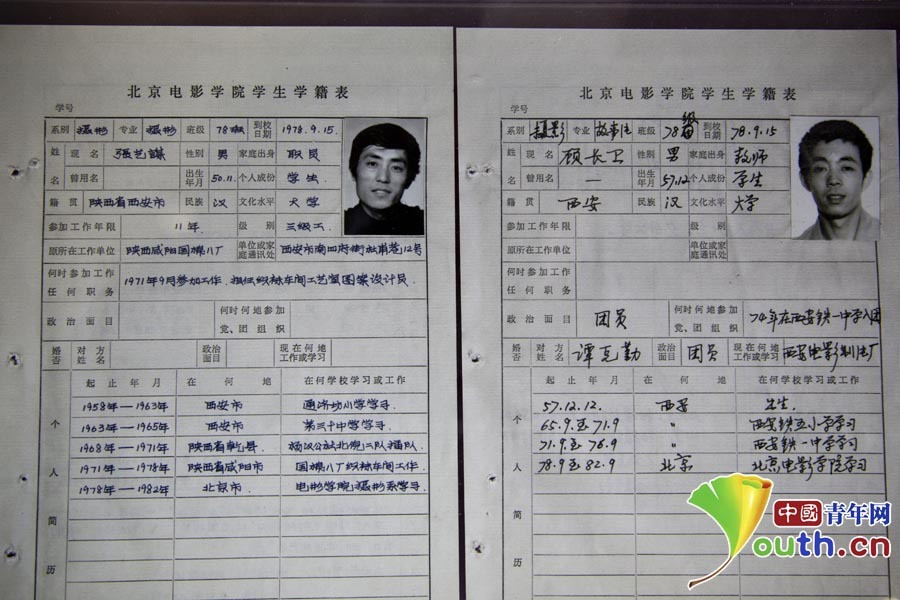 北京电影学院学生学籍表
学号
系别 摄影 专业 摄影 班级 78班 到校日期 1978.9.15.
姓名 现名 张艺谋 性别 男 家庭出身 职员
曾用名 出生年月 50.11. 个人成份 学生
籍贯 陕西省西安市 民族 汉 文化水平 大学
参加工作年限 11年 级别 三级工
原所在工作单位 陕西咸阳国棉八厂 单位或家庭通讯处
何时参加工作任何职务 1971年9月参加工作.担任织袜车间工艺室图案设计员.
政治面目 何时何地参加党、团组织
婚否 对方姓名 政治面目 现在何地工作或学习
个人简历
起止年月 在何地 在何学校学习或工作
1958年—1963年 西安市 小学学习.
1963年—1965年 西安市 第三十中学学习.
1968年—1971年 陕西省乾县.
1971年—1978年 陕西省咸阳市 国棉八厂织袜车间工作.
1978年—1982年 北京市. 电影学院摄影系学习.
北京电影学院学生学籍表
学号
系别 摄影 专业 故事片 班级 78级 到校日期 78.9.15
姓名 现名 顾长卫 性别 男 家庭出身 教师
曾用名 — 出生年月 57.12 个人成份 学生
籍贯 西安 民族 汉 文化水平 大学
参加工作年限 级别
原所在工作单位 单位或家庭通讯处
何时参加工作任何职务
政治面目 团员 何时何地参加党、团组织 74年在西安铁一中学入团
婚否 对方姓名 谭克勤 政治面目 团员 现在何地工作或学习 西安电影制片厂
个人简历
起止年月 在何地 在何学校学习或工作
57.12.12. 西安 出生.
65.9至71.9 〃 西安铁五小学学习
71.9至76.9 〃 西安铁一中学学习
78.9至82.9 北京 北京电影学院学习
中國青年网
Youth.cn